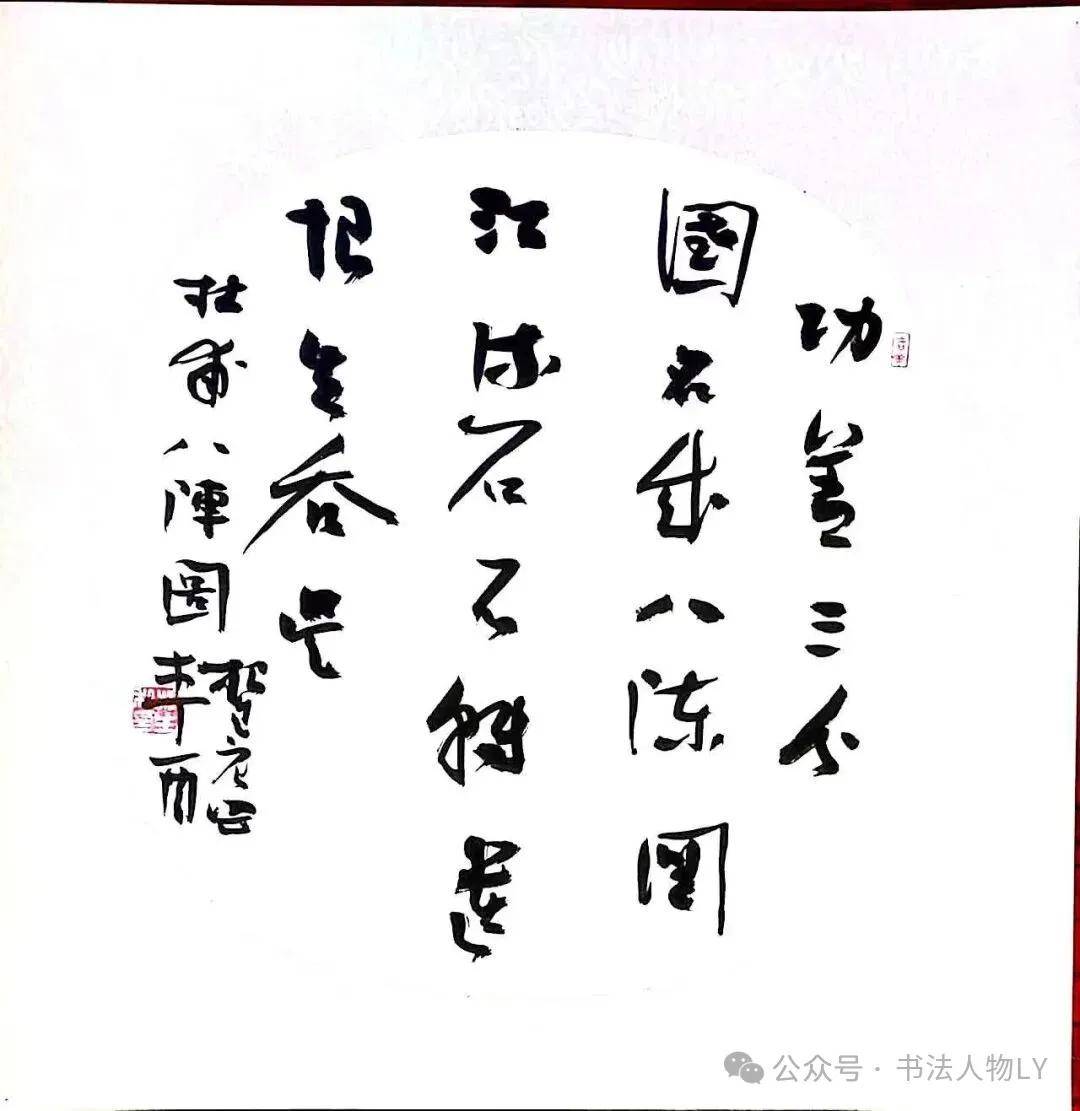 功蓋三分
國名成八陳圖
江流石不轉遺
恨失吞吳
杜甫八陣圖
公众号·书法人物LY